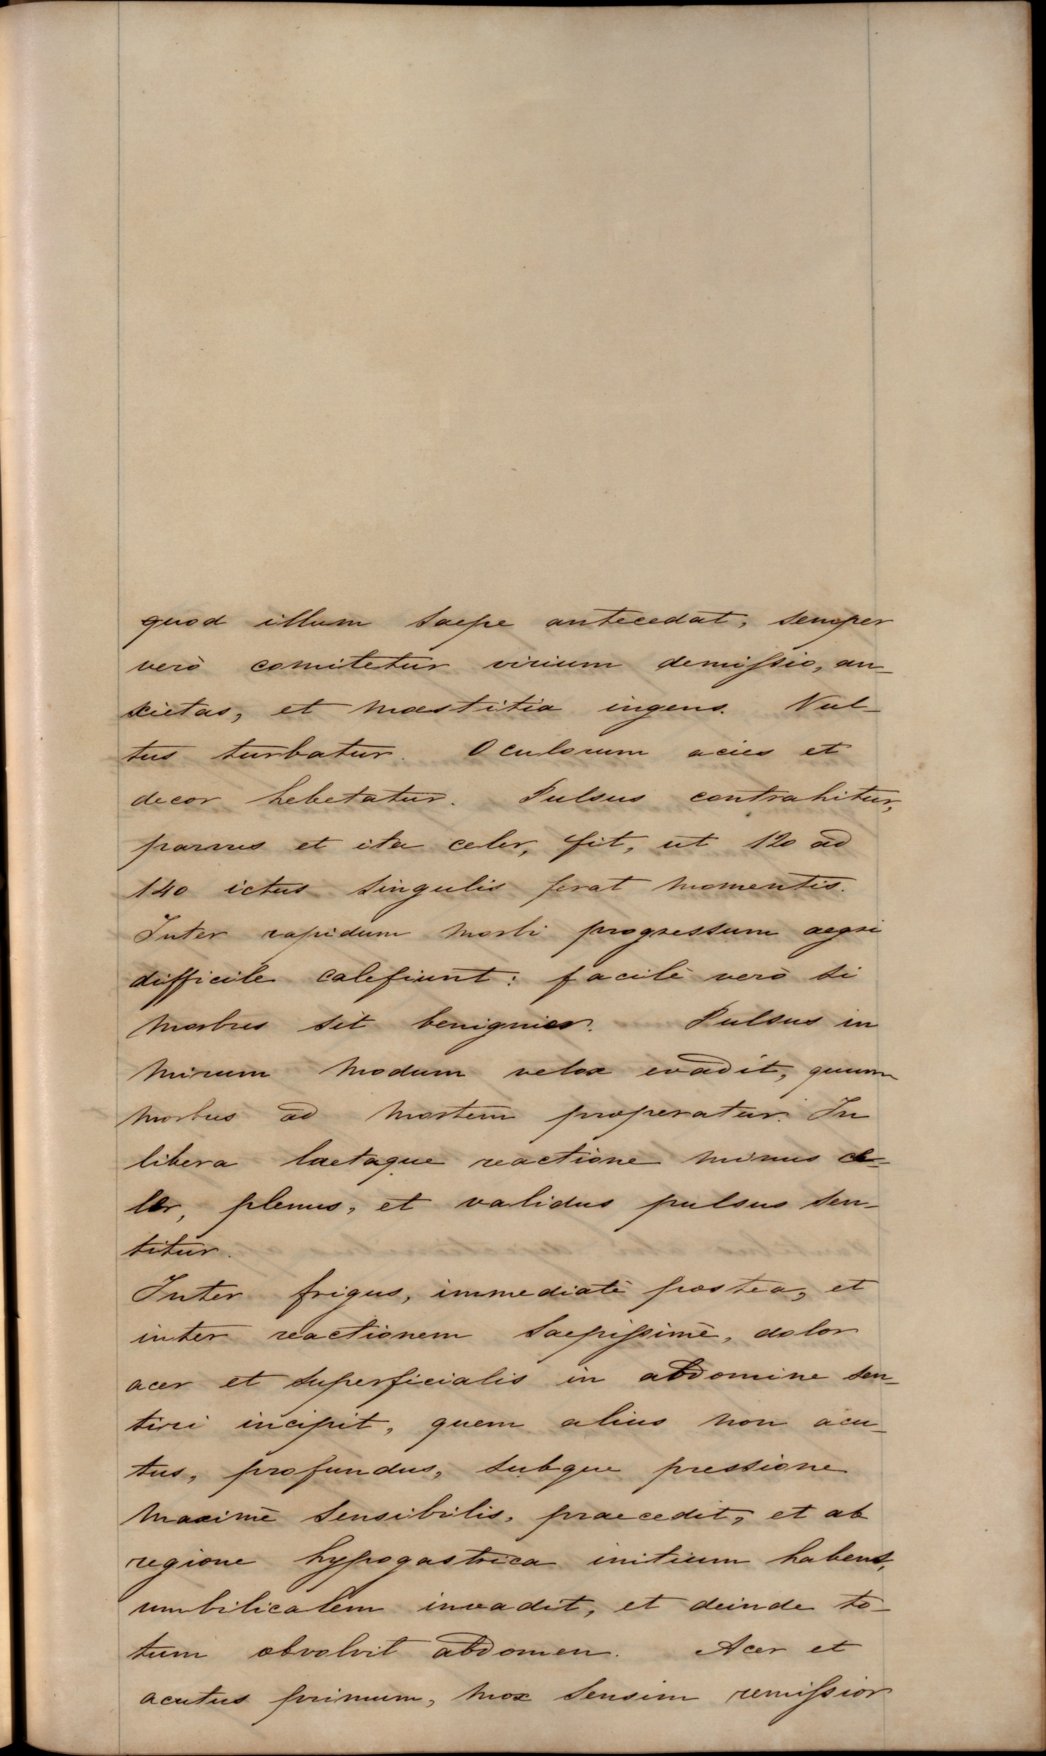 quod illum saepe antecedat, semper
verò comitetur virium demissio, an-
xietas, et mœstitia ingens. Vul-
tus turbatur. Oculorum acies et
decor hebetatur. Pulsus contrahitur,
parvus et ita celer, fit, ut 120 ad
140 ictus singulis ferat momentis.
Inter rapidum morbi progressum aegri
difficile calefiunt: facilè verò si
morbus sit benignior. Pulsus in
mirum modum velox evadit, quum
morbus ad mortem properatur. In
libera laetaque reactione minus ce-
ler, plenus, et validus pulsus sen-
titur.
Inter frigus, immediatè postea, et
inter reactionem saepissimè, dolor
acer et superficialis in abdomine sen-
tiri incipit, quem alius non acu-
tus, profundus, subque pressione
maximè sensibilis, praecedit, et ab
regione hypogastrica initium habens,
umbilicalem invadit, et deinde to-
tum obvolvit abdomen. Acer et
acutus primum, mox sensim remissior